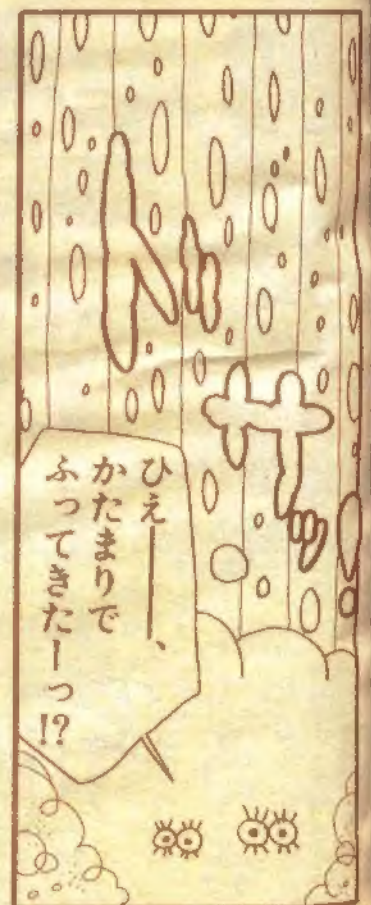 ドサッ
ひえ——、
かたまりで
ふってきたーっ!?